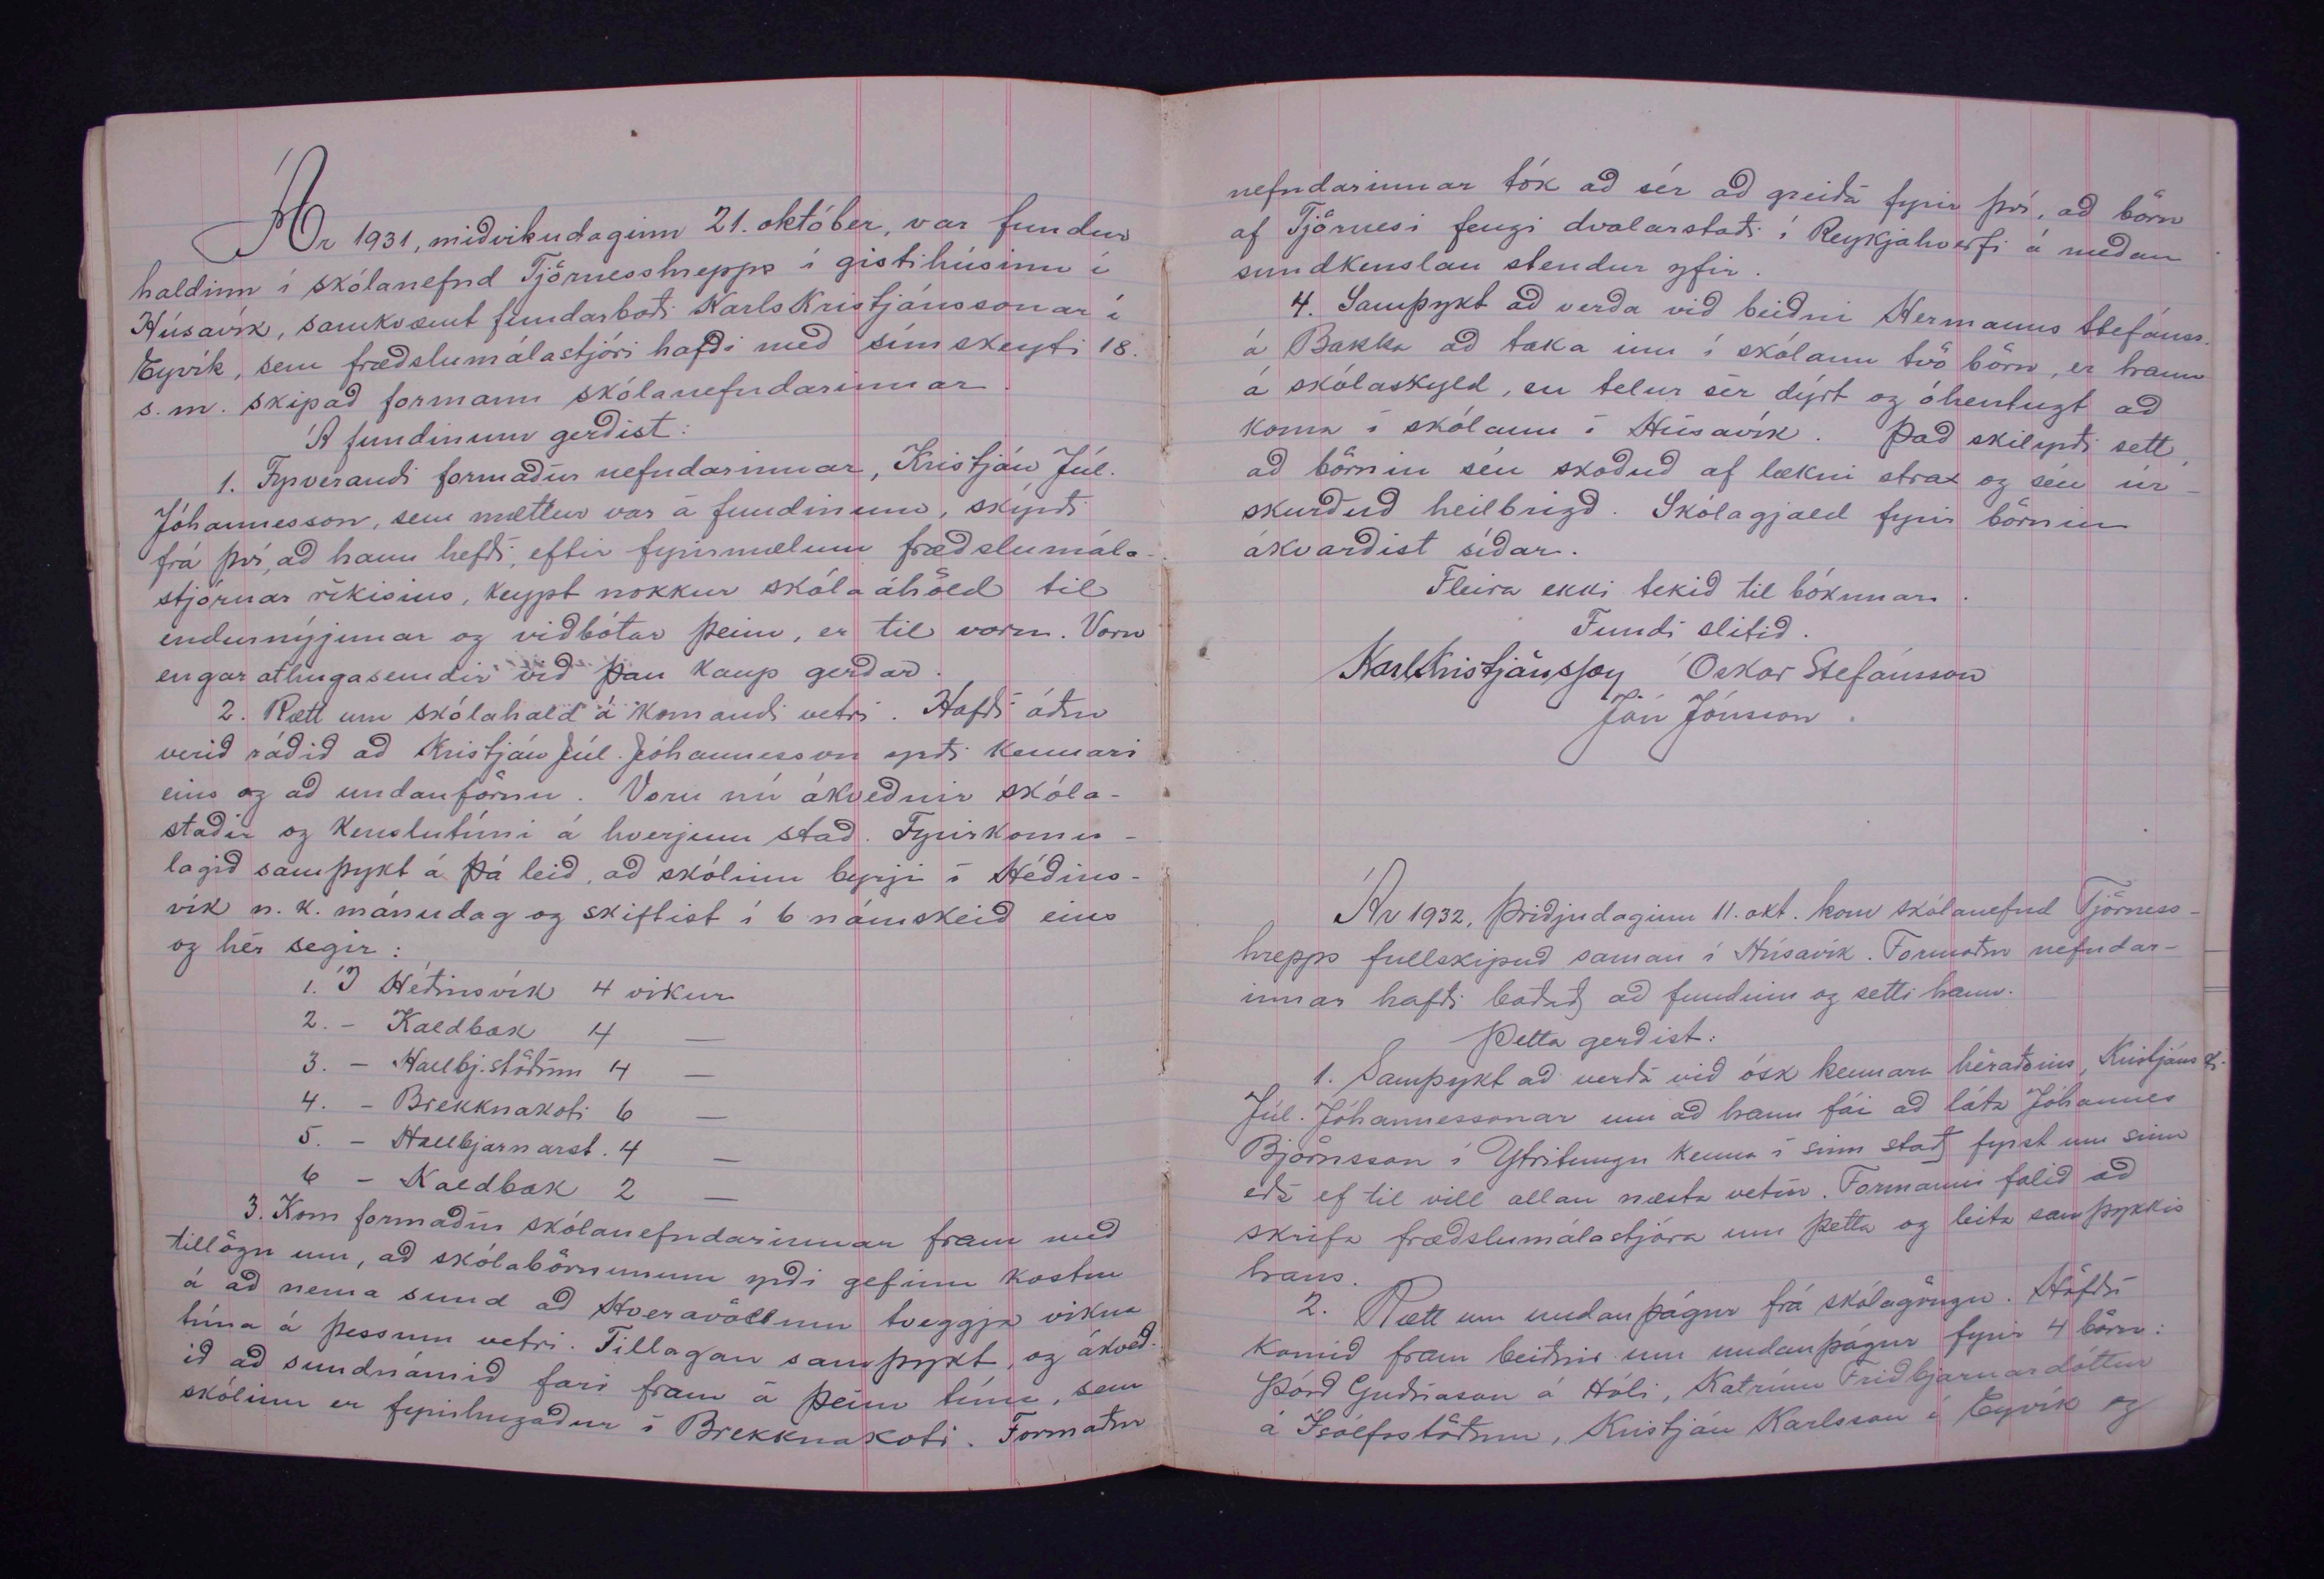 Ár 1931, miðvikudaginn 21. október, var fundur
haldinn í skólanefnd Tjörnesshrepps í gistihúsinu í
Húsavík, samkvæmt fundarboði Karls Kristjánssonar í
Eyvík, sem fræðslumálastjóri hafði með símskeyti 18.
s.m. skipað formann skólanefndarinnar.
Á fundinum gerðist:
1. Fyrverandi formaður nefndarinnar, Kristján Júl.
Jóhannesson, sem mættur var á fundinum, skýrði
frá því, að hann hefði, eftir fyrirmælum fræðslumála-
stjórnar ríkisins, keypt nokkur skólaáhöld til
endurnýjunar og viðbótar þeim, er til voru. Voru
engar athugasemdir við þau kaup gerðar.
2. Rætt um skólahald á komandi vetri. Hafði áður
verið ráðið að Kristján Júl. Jóhannesson yrði kennari
eins og að undanförnu. Voru nú ákveðnir skóla-
staðir og kenslutími á hverjum stað. Fyrirkomu-
lagið samþykt á þá leið, að skólinn byrji í Héðins-
vík n.k. mánudag og skiftist í 6 námskeið eins
og hér segir:
1. Í Héðinsvík 4 vikur
2. - Kaldbak 4 —
3. - Hallbj.stöðum 4 —
4. - Brekknakoti 6 —
5. - Hallbjarnarst. 4 —
6 - Kaldbak 2 —
3. Kom formaður skólanefndarinnar fram með
tillögu um, að skólabörnunum yrði gefinn kostur
á að nema sund að Hveravöllum tveggja vikna
tíma á þessum vetri. Tillagan samþykt, og ákveð-
ið að sundnámið fari fram á þeim tíma, sem
skólinn er fyrirhugaður í Brekknakoti. Formaður
nefndarinnar tók að sér að greiða fyrir því, að börn
af Tjörnesi fengi dvalarstaði í Reykjahverfi á meðan
sundkenslan stendur yfir.
4. Samþykt að verða við beiðni Hermanns Stefánss.
á Bakka að taka inn í skólann tvö börn, er hann
á skólaskyld, en telur sér dýrt og óhentugt að
koma í skólann í Húsavík. Það skilyrði sett,
að börnin séu skoðuð af lækni strax og séu úr-
skurðuð heilbrigð. Skólagjald fyrir börnin
ákvarðist síðar.
Fleira ekki tekið til bókunar.
Fundi slitið.
Karl Kristjánsson Óskar Stefánsson
Jón Jónsson.
Ár 1932, þriðjudaginn 11. okt. kom skólanefnd Tjörness-
hrepps fullskipuð saman í Húsavík. Formaður nefndar-
innar hafði boðað að fundinn og setti hann.
Þetta gerðist:
1. Samþykt að verða við ósk kennara héraðsins, Kristjáns
Júl. Jóhannessonar um að hann fái að láta Jóhannes
Björnsson í Ytritungu kenna í sinn stað fyrst um sinn
eða ef til vill allan næsta vetur. Formanni falið að
skrifa fræðslumálastjóra um þetta og leita samþykkis
hans.
2. Rætt um undanþágur frá skólagöngu. Höfðu
komið fram beiðnir um undanþágur fyrir 4 börn:
Þórð Guðnason á Hóli, Katrínu Friðbjarnardóttur
á Ísólfsstöðum, Kristján Karlsson í Eyvík og